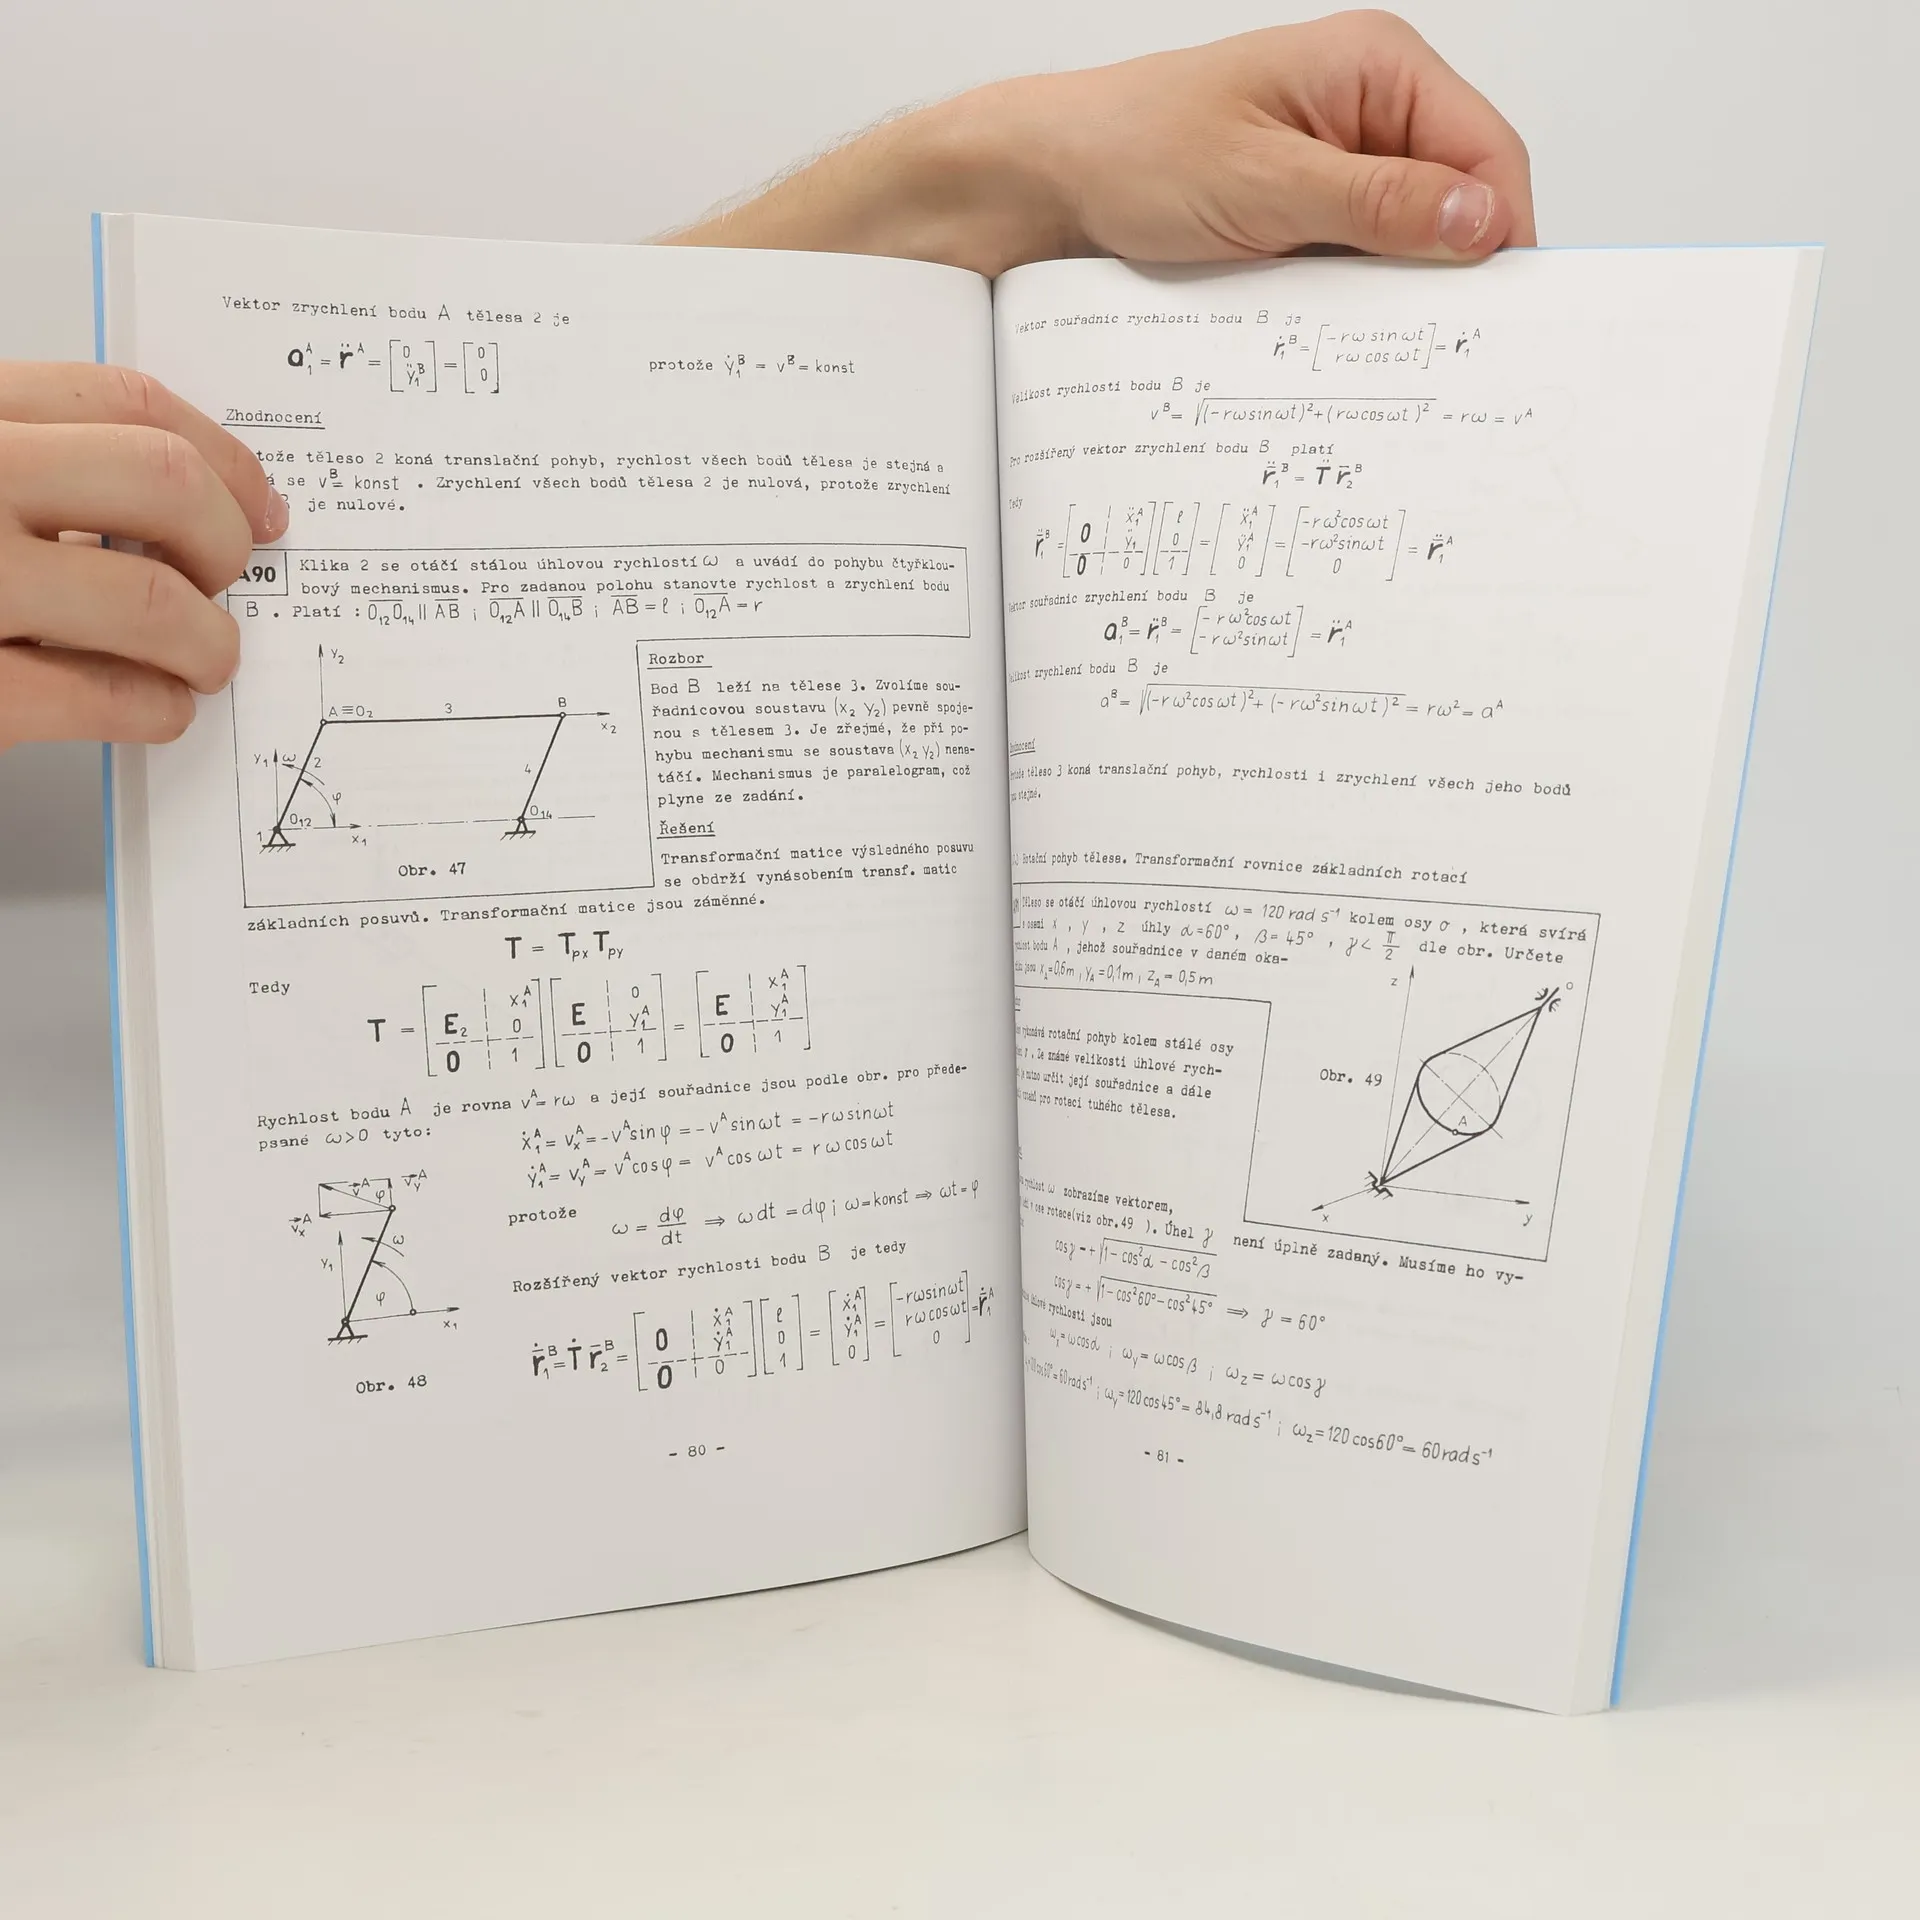 Vektor zrychlení bodu A tělesa 2 je
a₁ᴬ = r̈ᴬ = [0; ÿ₁ᴮ] = [0; 0] protože ẏ₁ᴮ = vᴮ = konst
Zhodnocení
tože těleso 2 koná translační pohyb, rychlost všech bodů tělesa je stejná a
á se vᴮ= konst . Zrychlení všech bodů tělesa 2 je nulová, protože zrychlení
B je nulové.
A90 Klika 2 se otáčí stálou úhlovou rychlostí ω a uvádí do pohybu čtyřklou-
bový mechanismus. Pro zadanou polohu stanovte rychlost a zrychlení bodu
B . Platí : O₁₂O₁₄ ∥ AB ; O₁₂A ∥ O₁₄B ; AB = ℓ ; O₁₂A = r
y₂
A≡O₂ 3 B x₂
y₁ ω 2 φ 4
1 O₁₂ x₁ O₁₄
Obr. 47
Rozbor
Bod B leží na tělese 3. Zvolíme sou-
řadnicovou soustavu (x₂ y₂) pevně spoje-
nou s tělesem 3. Je zřejmé, že při po-
hybu mechanismu se soustava (x₂ y₂) nena-
táčí. Mechanismus je paralelogram, což
plyne ze zadání.
Řešení
Transformační matice výsledného posuvu
se obdrží vynásobením transf. matic
základních posuvů. Transformační matice jsou záměnné.
T = Tₚₓ Tₚᵧ
Tedy
T = [E₂ x₁ᴬ 0; 0 1] [E 0 y₁ᴬ; 0 1] = [E x₁ᴬ y₁ᴬ; 0 1]
Rychlost bodu A je rovna vᴬ= rω a její souřadnice jsou podle obr. pro přede-
psané ω>0 tyto:
ẋ₁ᴬ = vₓᴬ = -vᴬ sin φ = -vᴬ sin ωt = -rω sin ωt
ẏ₁ᴬ = vᵧᴬ = vᴬ cos φ = vᴬ cos ωt = rω cos ωt
protože ω = dφ/dt ⇒ ωdt = dφ ; ω=konst ⇒ ωt=φ
vᴬ φ vᵧᴬ
vₓᴬ
ω
y₁
φ
x₁
Obr. 48
Rozšířený vektor rychlosti bodu B je tedy
ṙ₁ᴮ = Ṫ r₂ᴮ = [0 ẋ₁ᴬ ẏ₁ᴬ; 0 0] [ℓ; 0; 1] = [ẋ₁ᴬ; ẏ₁ᴬ; 0] = [-rω sin ωt; rω cos ωt; 0] = ṙ₁ᴬ
- 80 -
Vektor souřadnic rychlosti bodu B je
ṙ₁ᴮ = [-rω sin ωt; rω cos ωt] = ṙ₁ᴬ
Velikost rychlosti bodu B je
vᴮ = √((-rω sin ωt)² + (rω cos ωt)²) = rω = vᴬ
Pro rozšířený vektor zrychlení bodu B platí
r̈₁ᴮ = T̈ r₂ᴮ
Tedy
r̈₁ᴮ = [0 ẍ₁ᴬ ÿ₁; 0 0] [ℓ; 0; 1] = [ẍ₁ᴬ; ÿ₁ᴬ; 0] = [-rω² cos ωt; -rω² sin ωt; 0] = r̈₁ᴬ
Vektor souřadnic zrychlení bodu B je
a₁ᴮ = r̈₁ᴮ = [-rω² cos ωt; -rω² sin ωt] = r̈₁ᴬ
Velikost zrychlení bodu B je
aᴮ = √((-rω² cos ωt)² + (-rω² sin ωt)²) = rω² = aᴬ
Zhodnocení
těleso 3 koná translační pohyb, rychlosti i zrychlení všech jeho bodů
stejné.
Rotační pohyb tělesa. Transformační rovnice základních rotací
Těleso se otáčí úhlovou rychlostí ω = 120 rad s⁻¹ kolem osy σ , která svírá
s osami x , y , z úhly α=60°, β= 45° , γ < π/2 dle obr. Určete
bodu A , jehož souřadnice v daném oka-
jsou x_A=0,6m , y_A=0,1m , z_A= 0,5m
z
o
Obr. 49
A
x
y
rotační pohyb kolem stálé osy
Ze známé velikosti úhlové rych-
nutno určit její souřadnice a dále
pro rotaci tuhého tělesa.
rychlost ω zobrazíme vektorem,
v ose rotace(viz obr.49 ). Úhel γ není úplně zadaný. Musíme ho vy-
cos γ = + √(1 - cos²α - cos²β)
cos γ = + √(1 - cos²60° - cos²45°) ⇒ γ = 60°
úhlové rychlosti jsou
ωₓ = ω cos α ; ωᵧ = ω cos β ; ω_z = ω cos γ
cos 60° = 60 rad s⁻¹ ; ωᵧ = 120 cos 45° = 84,8 rad s⁻¹ ; ω_z = 120 cos 60° = 60 rad s⁻¹
- 81 -